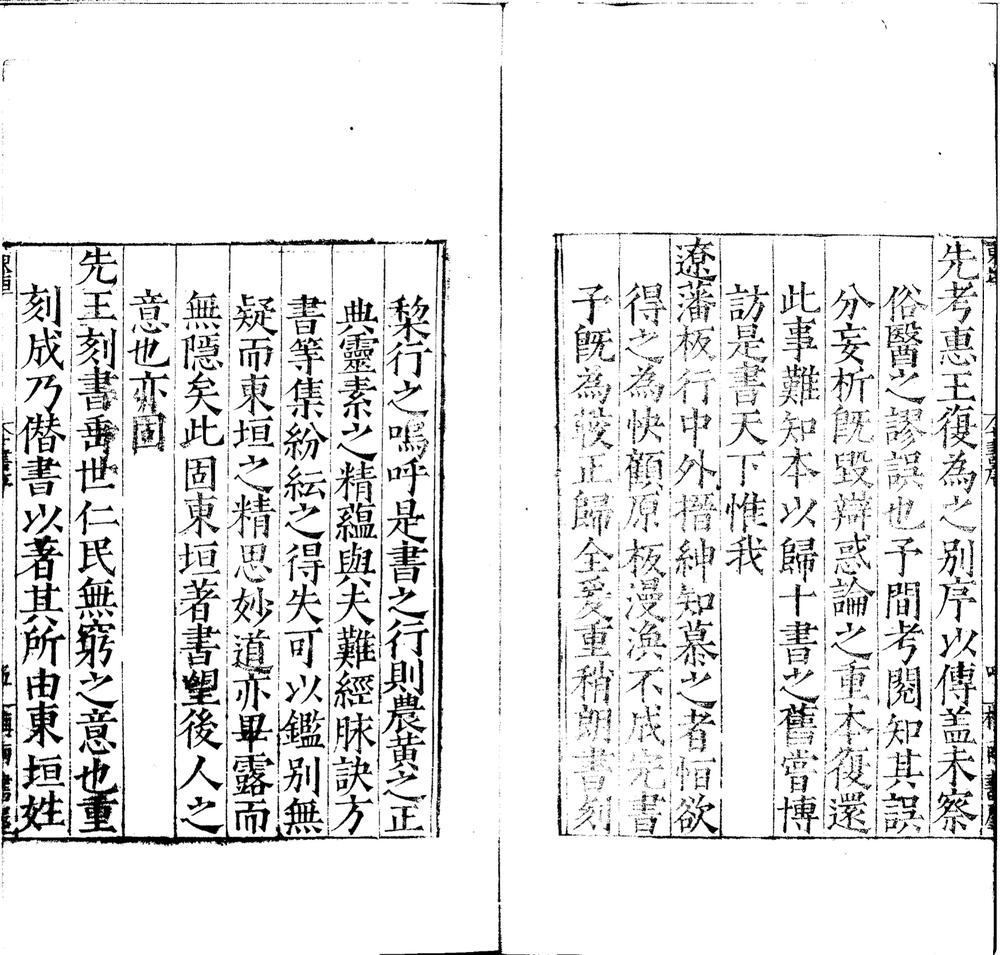 先考惠王復為之別序以傳盖未察
俗醫之謬誤也予間考閱知其誤
分妄析旣毀辯惑論之重本復還
此事難知本以歸十書之舊嘗博
訪是書天下惟我
遼藩板行中外搢紳知慕之者恒欲
得之為快顧原板漫渙不成完書
予旣為較正歸全爰重稍朗書刻
棃行之嗚呼是書之行則農黃之正
典靈素之精蘊與夫難經脉訣方
書等集紛紜之得失可以鑑別無
疑而東垣之精思妙道亦畢露而
無隱矣此固東垣著書望後人之
意也亦固
先王刻書垂世仁民無窮之意也重
刻成乃僣書以著其所由東垣姓